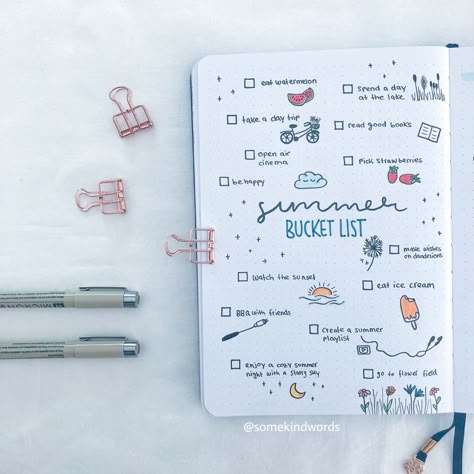 eat watermelon
spend a day
at the lake
take a day trip
read good books
open air
cinema
pick strawberries
be happy
summer
BUCKET LIST
make wishes
on dandelions
watch the sunset
eat ice cream
BBQ with friends
create a summer
playlist
enjoy a cozy summer
night with a starry sky
go to flower field
@somekindwords